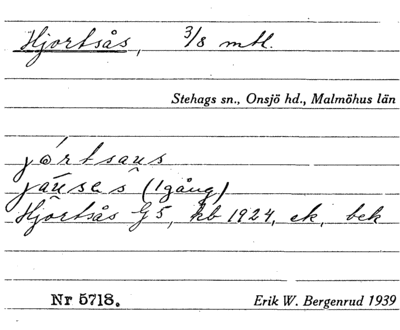 Hjortsås, 3/8 mtl.
Stehags sn., Onsjö hd., Malmöhus län
jórtsaus
jáuses (1 gång)
Hjortsås G5, kb 1924, ek, bek
Nr 5718.
Erik W. Bergenrud 1939